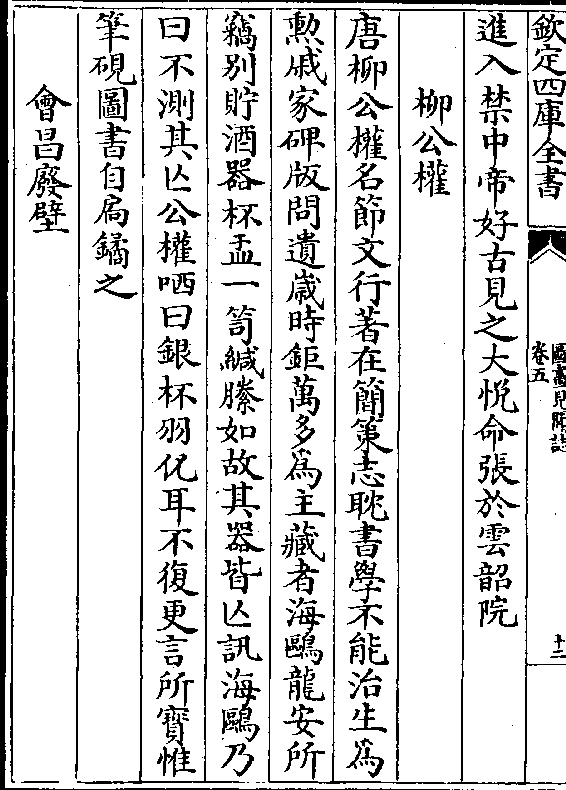 欽定四庫全書
圖畫見聞誌
卷五
十二
進入禁中帝好古見之大悅命張於雲韶院
柳公權
唐柳公權名節文行著在簡策志耽書學不能治生為
勲戚家碑版問遺嵗時鉅萬多為主藏者海鷗龍安所
竊別貯酒器杯盂一笥緘縢如故其器皆亡訊海鷗乃
曰不測其亡公權哂曰銀杯羽化耳不復更言所寳惟
筆硯圖書自扄鐍之
會昌廢壁